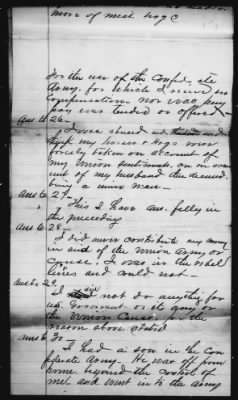 more of meat hogs
For the use of the Confederate
Army, for which I never rec
Compensation nor was any
pay ever tendered or offered—
Ans to 26—
I was abused and
my horses & hogs were
forcibly taken on account of
my Union sentiments on account
of my husband the deceased
being a union man—
Ans to 27—
This I have ans. fully in
the preceding
Ans to 28—
I did never contribute any money
in aid of the Union Army or
cause. I was in the rebel
lines and could not—
Ans to 29,
I did not do anything for
us. Government or its army or
the Union Cause, for the
reason above stated
Ans to 30—
I had a son in the Con
federate Army. He was off from
home beyond the control of
me and went in to the army